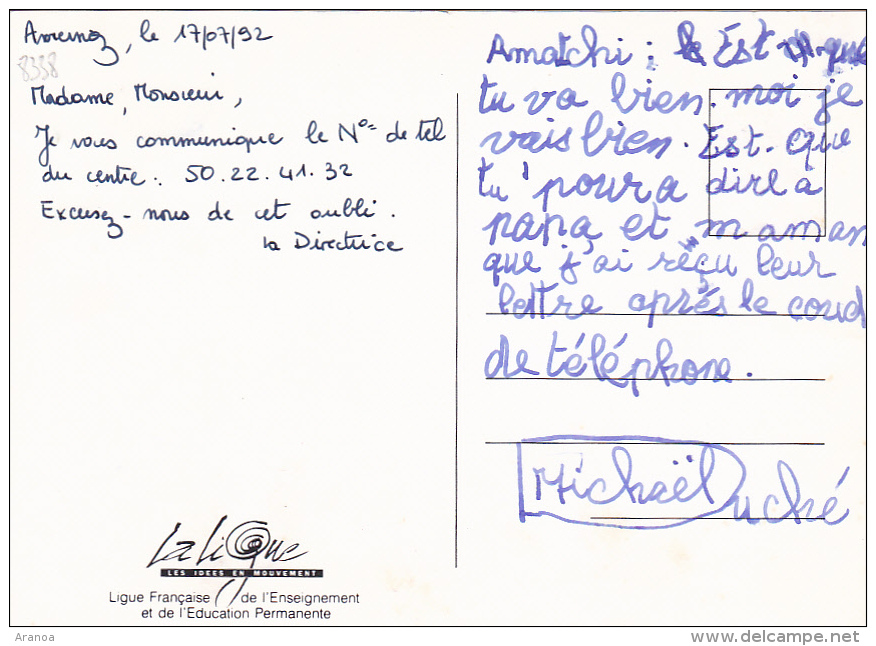 Avernoz, le 17/07/92
8338
Madame, Monsieur,
Je vous communique le N° de tel
du centre : 50.22.41.32
Excusez-nous de cet oubli.
la Directrice
La Ligue
LES IDÉES EN MOUVEMENT
Ligue Française de l'Enseignement
et de l'Education Permanente
Amatchi : Est que
tu va bien. moi je
vais bien. Est. que
tu poura dire à
papa et maman
que j'ai réçu leur
lettre après le coud
de téléphone.
Michaël Duché
Aranoa
www.delcampe.net